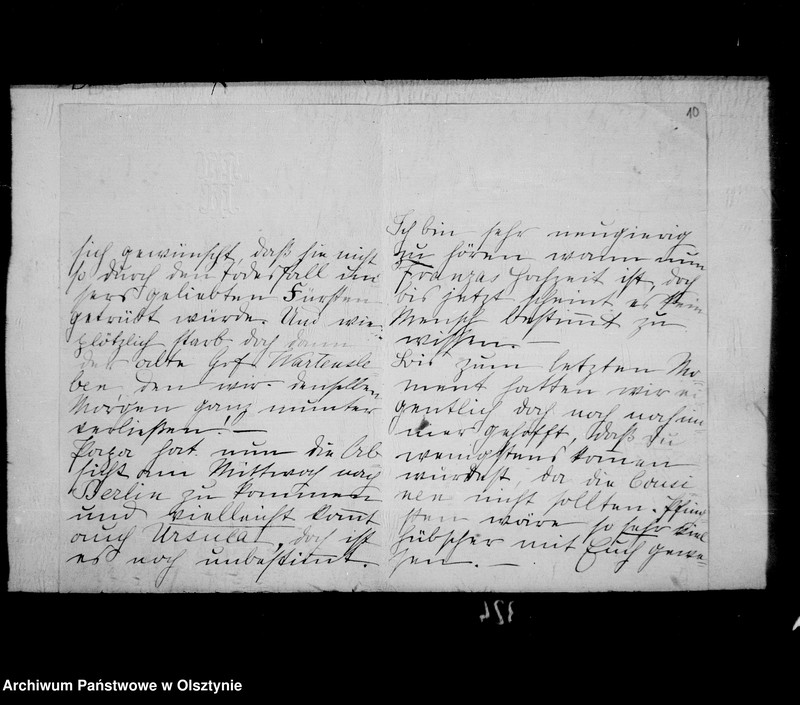 10
sich gewünscht, daß sie nicht
so durch den Todesfall un
sers geliebten Fürsten
getrübt würde. Und wie
plötzlich starb doch dann
der alte Grf. Wartensle
ben, den wir denselben
Morgen ganz munter
verließen. –
Papa hat nun die Ab
sicht am Mittwoch nach
Berlin zu kommen
und vielleicht komt
auch Ursula, doch ist
es noch unbestimt.
Ich bin sehr neugierig
zu hören wann nun
Franzas Hochzeit ist, doch
bis jetzt scheint es kein
Mensch bestimt zu
wissen. –
Bis zum letzten Mo-
ment hatten wir ei
gentlich doch noch noch im-
mer gehofft, daß Du
wenigstens komen
würdest, da die Cousi
nen nicht sollten. Pfing
sten wäre so sehr viel
hübscher mit Euch gewe-
sen. –
324
Archiwum Państwowe w Olsztynie